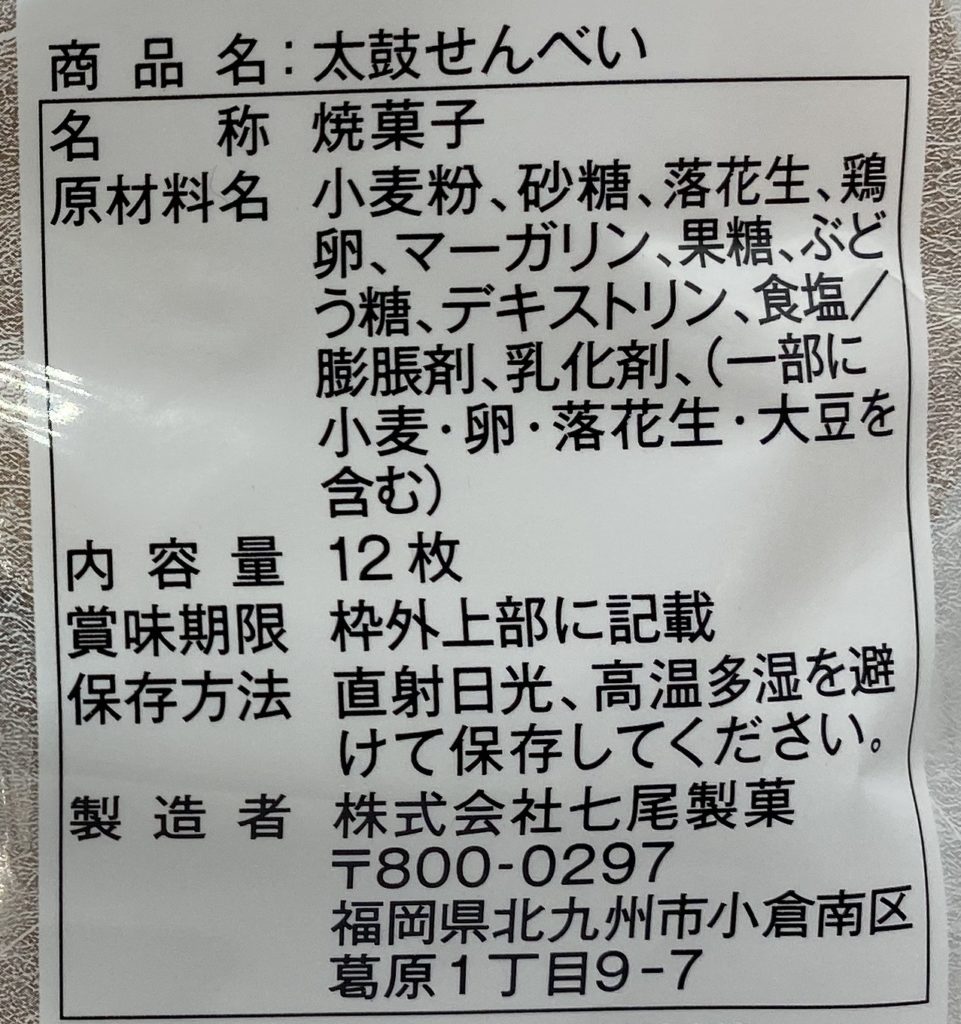 商品名：太鼓せんべい
名称 焼菓子
原材料名 小麦粉、砂糖、落花生、鶏
卵、マーガリン、果糖、ぶど
う糖、デキストリン、食塩／
膨脹剤、乳化剤、（一部に
小麦・卵・落花生・大豆を
含む）
内容量 12枚
賞味期限 枠外上部に記載
保存方法 直射日光、高温多湿を避
けて保存してください。
製造者 株式会社七尾製菓
〒800-0297
福岡県北九州市小倉南区
葛原1丁目9-7